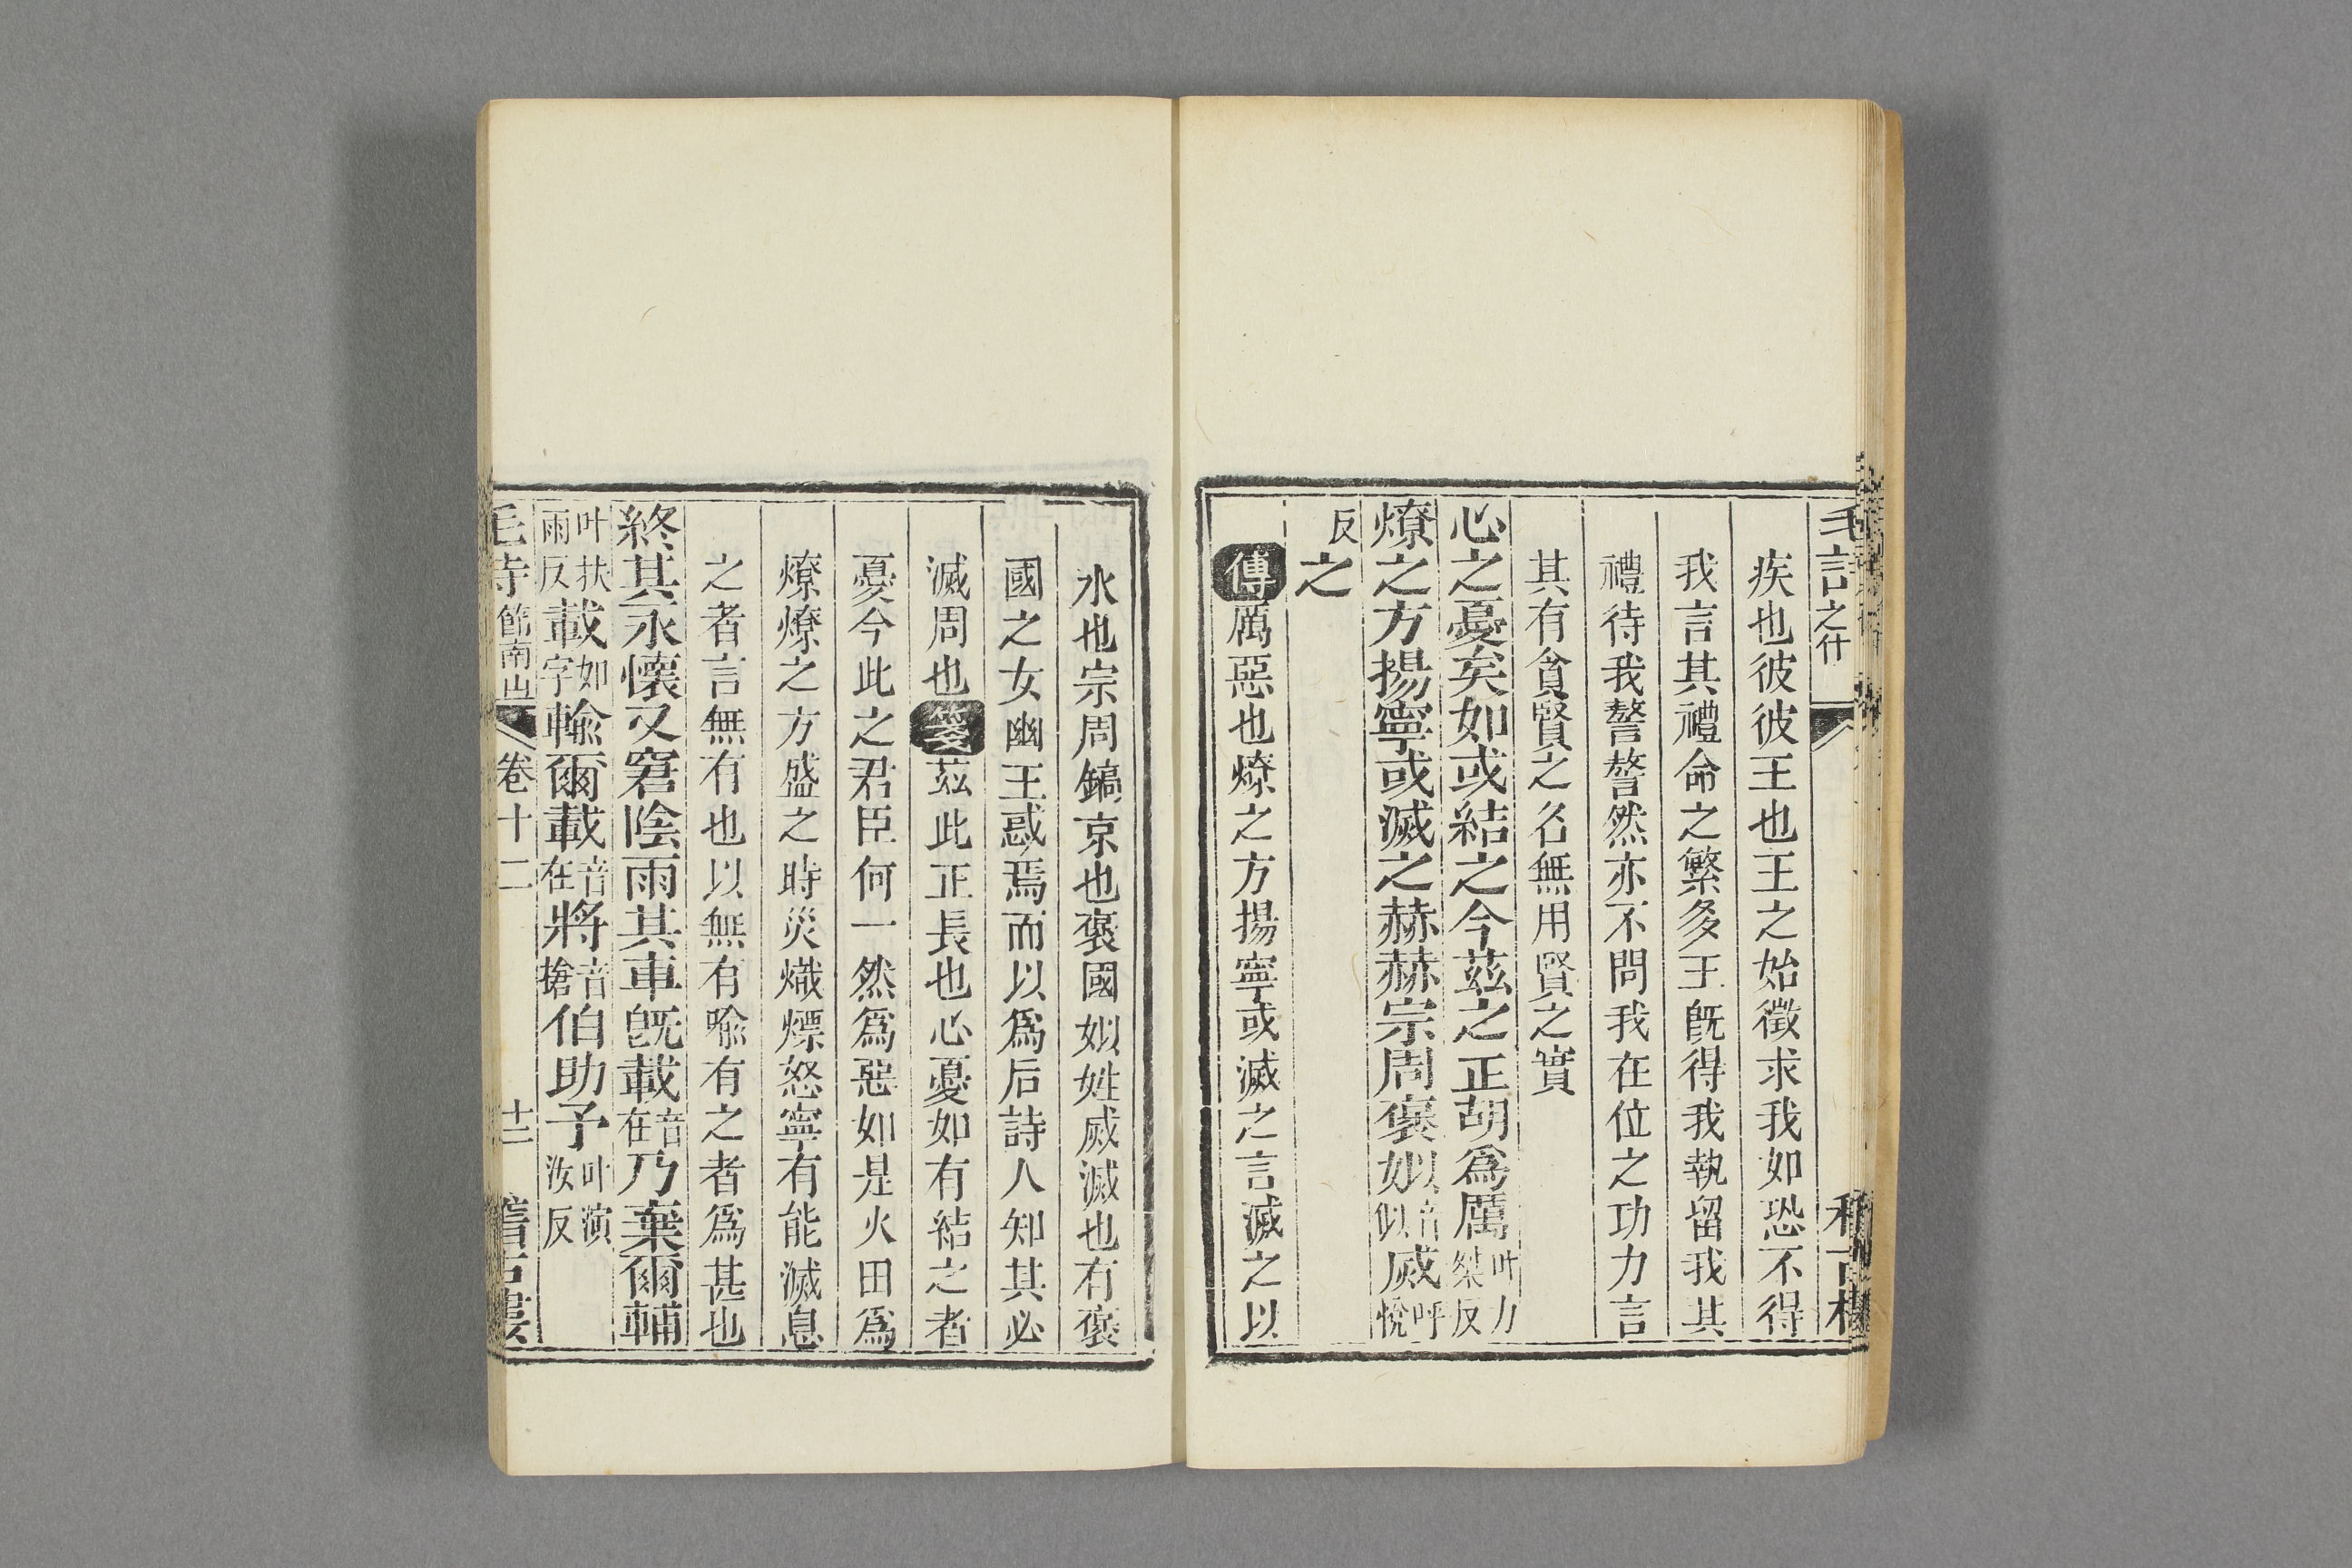 毛詩之什　稽古樓
疾也彼彼王也王之始徵求我如恐不得
我言其禮命之繁多王旣得我執留我其
禮待我謷謷然亦不問我在位之功力言
其有貪賢之名無用賢之實
心之憂矣如或結之今茲之正胡爲厲叶力桀反
燎之方揚寧或滅之赫赫宗周褒姒音似烕呼悅
反之
傳厲惡也燎之方揚寧或滅之言滅之以
水也宗周鎬京也褒國姒姓烕滅也有褒
國之女幽王惑焉而以爲后詩人知其必
滅周也箋茲此正長也心憂如有結之者
憂今此之君臣何一然爲惡如是火田爲
燎燎之方盛之時炎熾熛怒寧有能滅息
之者言無有也以無有喻有之者爲甚也
終其永懷又窘陰雨其車旣載音在乃棄爾輔
叶扶雨反載如字輸爾載音在將音搶伯助予叶演汝反
毛詩節南山　卷十二　十二　舊古樓